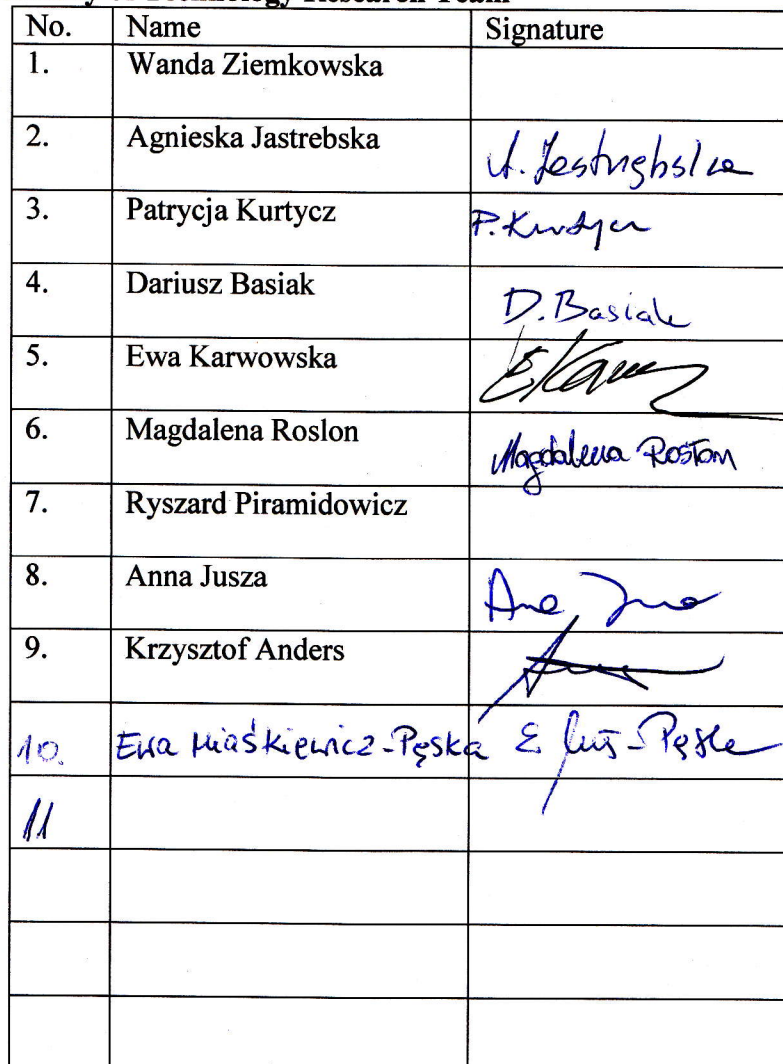 Technology Research Team
No. Name Signature
1. Wanda Ziemkowska
2. Agnieska Jastrebska A. Jastrzębska
3. Patrycja Kurtycz P. Kurtycz
4. Dariusz Basiak D. Basiak
5. Ewa Karwowska
6. Magdalena Roslon Magdalena Rosłon
7. Ryszard Piramidowicz
8. Anna Jusza
9. Krzysztof Anders
10. Ewa Miaśkiewicz-Pęska
11